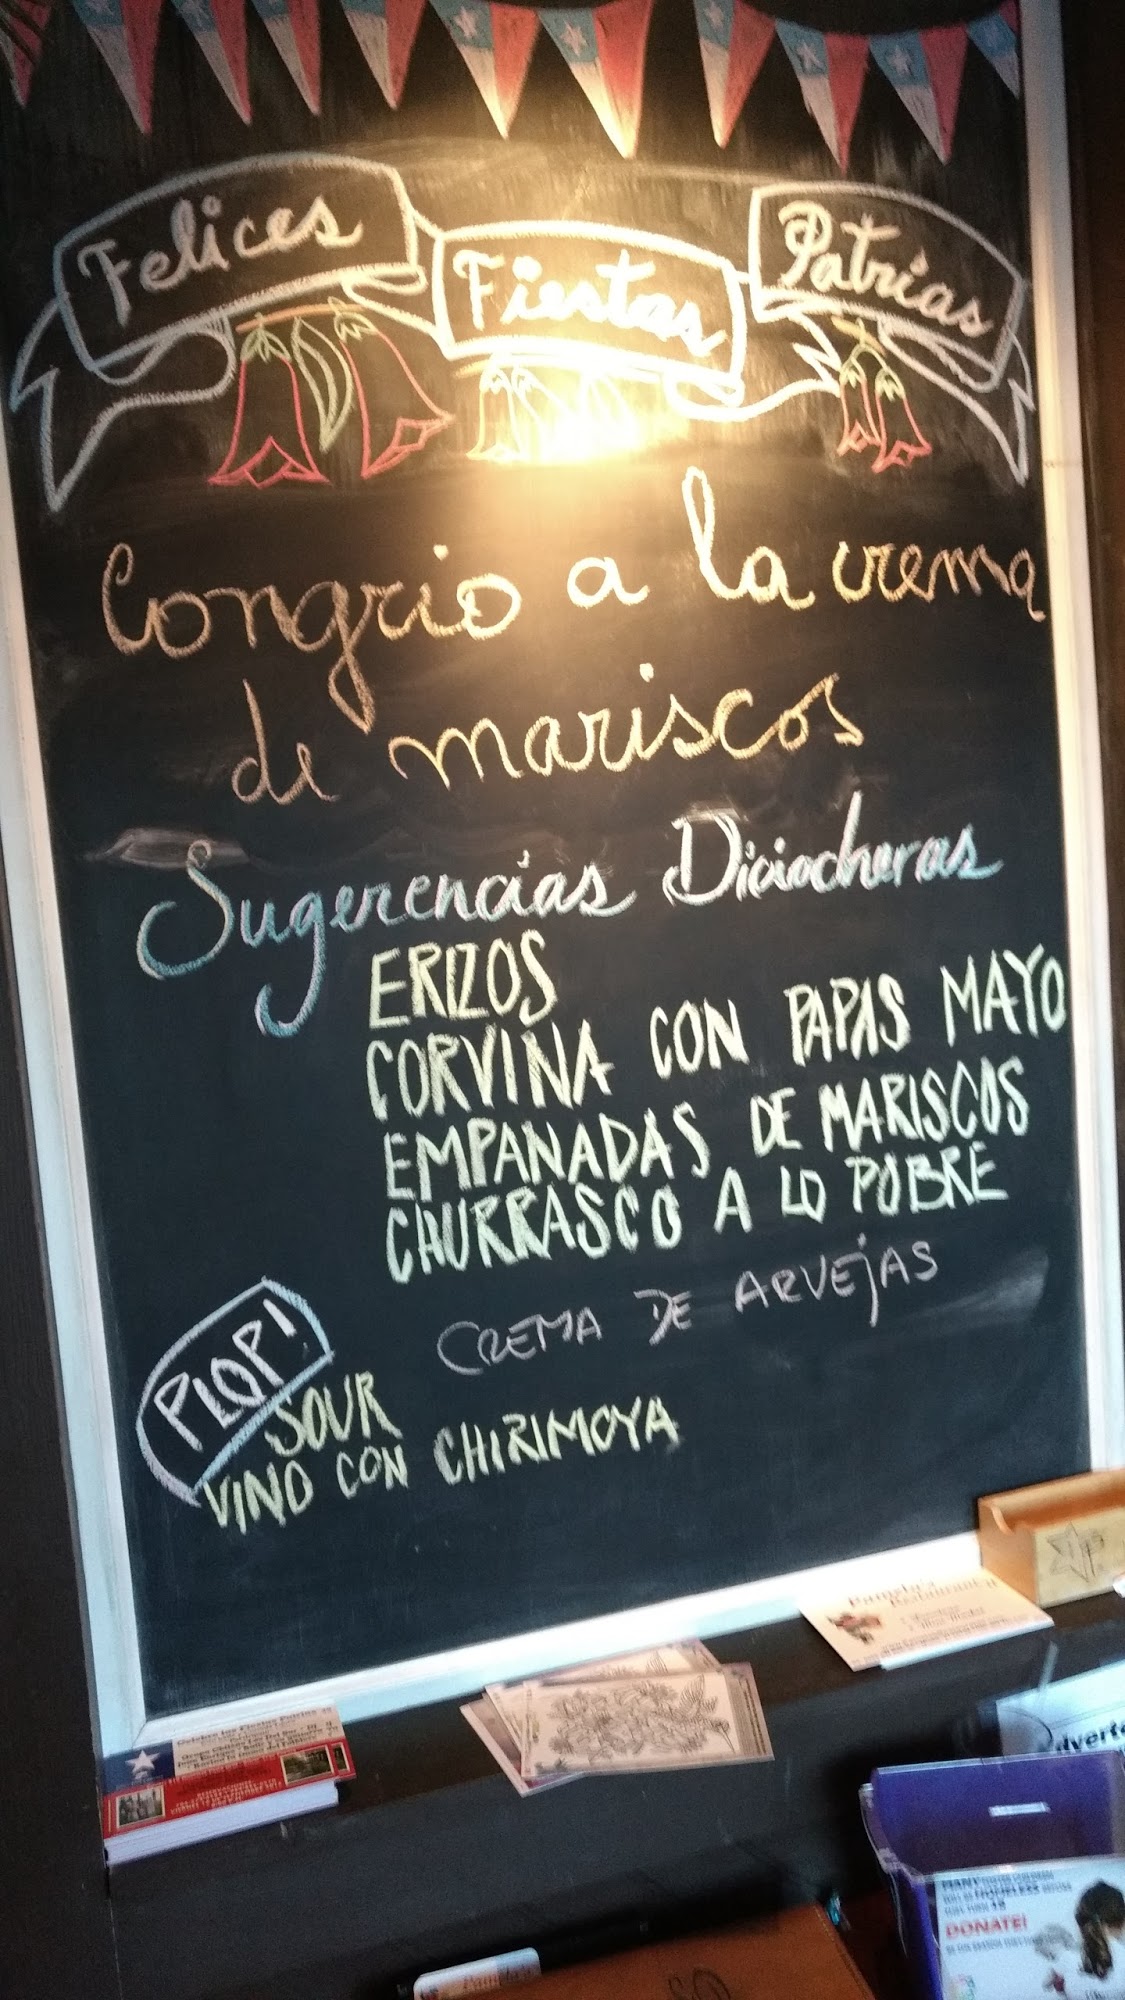 Felices
Fiestas
Patrias
Congrio a la crema
de mariscos
Sugerencias Diciocheras
ERIZOS
CORVINA CON PAPAS MAYO
EMPANADAS DE MARISCOS
CHURRASCO A LO POBRE
CREMA DE ARVEJAS
PLOP!
SOUR
VINO CON CHIRIMOYA
Pamela's
Restaurant
DONATE!